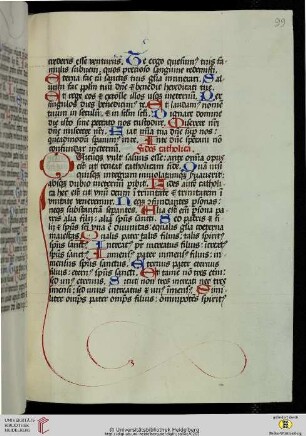 crederis esse venturus. Te ergo quesumus tuis fa
mulis subveni, quos precioso sanguine redemisti.
Eterna fac cum sanctis tuis gloria munerari. Sal
uum fac pplm tuu dne et benedic hereditati tue.
Et rege eos et extolle illos usqz ineternu. Per
singulos dies benedicimus te. Et laudam9 nomē
tuum in seculū, et in seclm scli. Dignare domine
die isto sine peccato nos custodire. Miserere nr̄i
dne miserere nr̄i. Fiat mīa tua dne sup nos:
quēadmodum sperauim9 in te. In te dne speraui nō
confundar ineternū. Fides catholica.
Quicunqz vult saluus esse: ante omnia opus
est ut teneat catholicam fidē. Quā nisi
quisqz integram inuiolatamqz seruauerit:
absqz dubio ineternū peribit. Fides autē catholi
ca hec est ut unū deum ī trinitate et trinitatem ī
unitate veneremur. Neqz confundentes personas:
neqz substantiā separantes. Alia est em̄ psona pa
tris alia filij: alia spūs sancti. Sed patris et fi
lij et spūs scī vna ē diuinitas: equalis glīa coeterna
maiestas. Qualis pater talis filius: talis spirit9
spūs sanct9. Increat9 pr̄ increatus filius: increat9
spūs sanct9. Inmens9 pater inmens9 filius: in
mensus spūs sanctus. Eternus pater eternus
filius: etern9 spūs sanct9. Et tamē nō tres etni:
sed unus eternus. Sicut non tres increati nec
tres inmensi: sed unus increatus et un9 inmens9. Si
militer omps pater omps filius: omnipotēs spirit9
99
UNIVERSITÄTS-
BIBLIOTHEK
HEIDELBERG
© Universitätsbibliothek Heidelberg